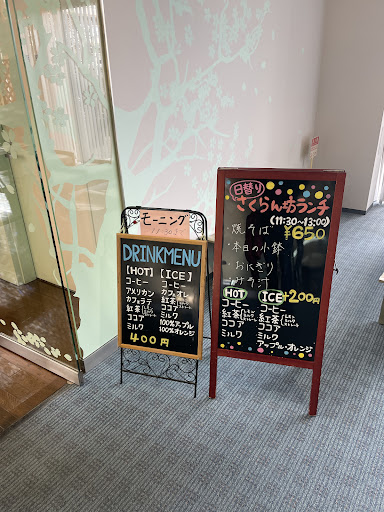 モーニング
DRINKMENU
[HOT]
コーヒー
アメリカン
カフェラテ
紅茶
ココア
ミルク
[ICE]
コーヒー
カフェオレ
紅茶
ココア
ミルク
100%アップル
100%オレンジ
400円
日替り
さくらん坊ランチ
(11:30~13:00)
¥650
・焼そば
・本日の小鉢
・おにぎり
HOT
コーヒー
紅茶
ココア
ミルク
ICE +200円
コーヒー
紅茶
ココア
ミルク
アップル・オレンジ